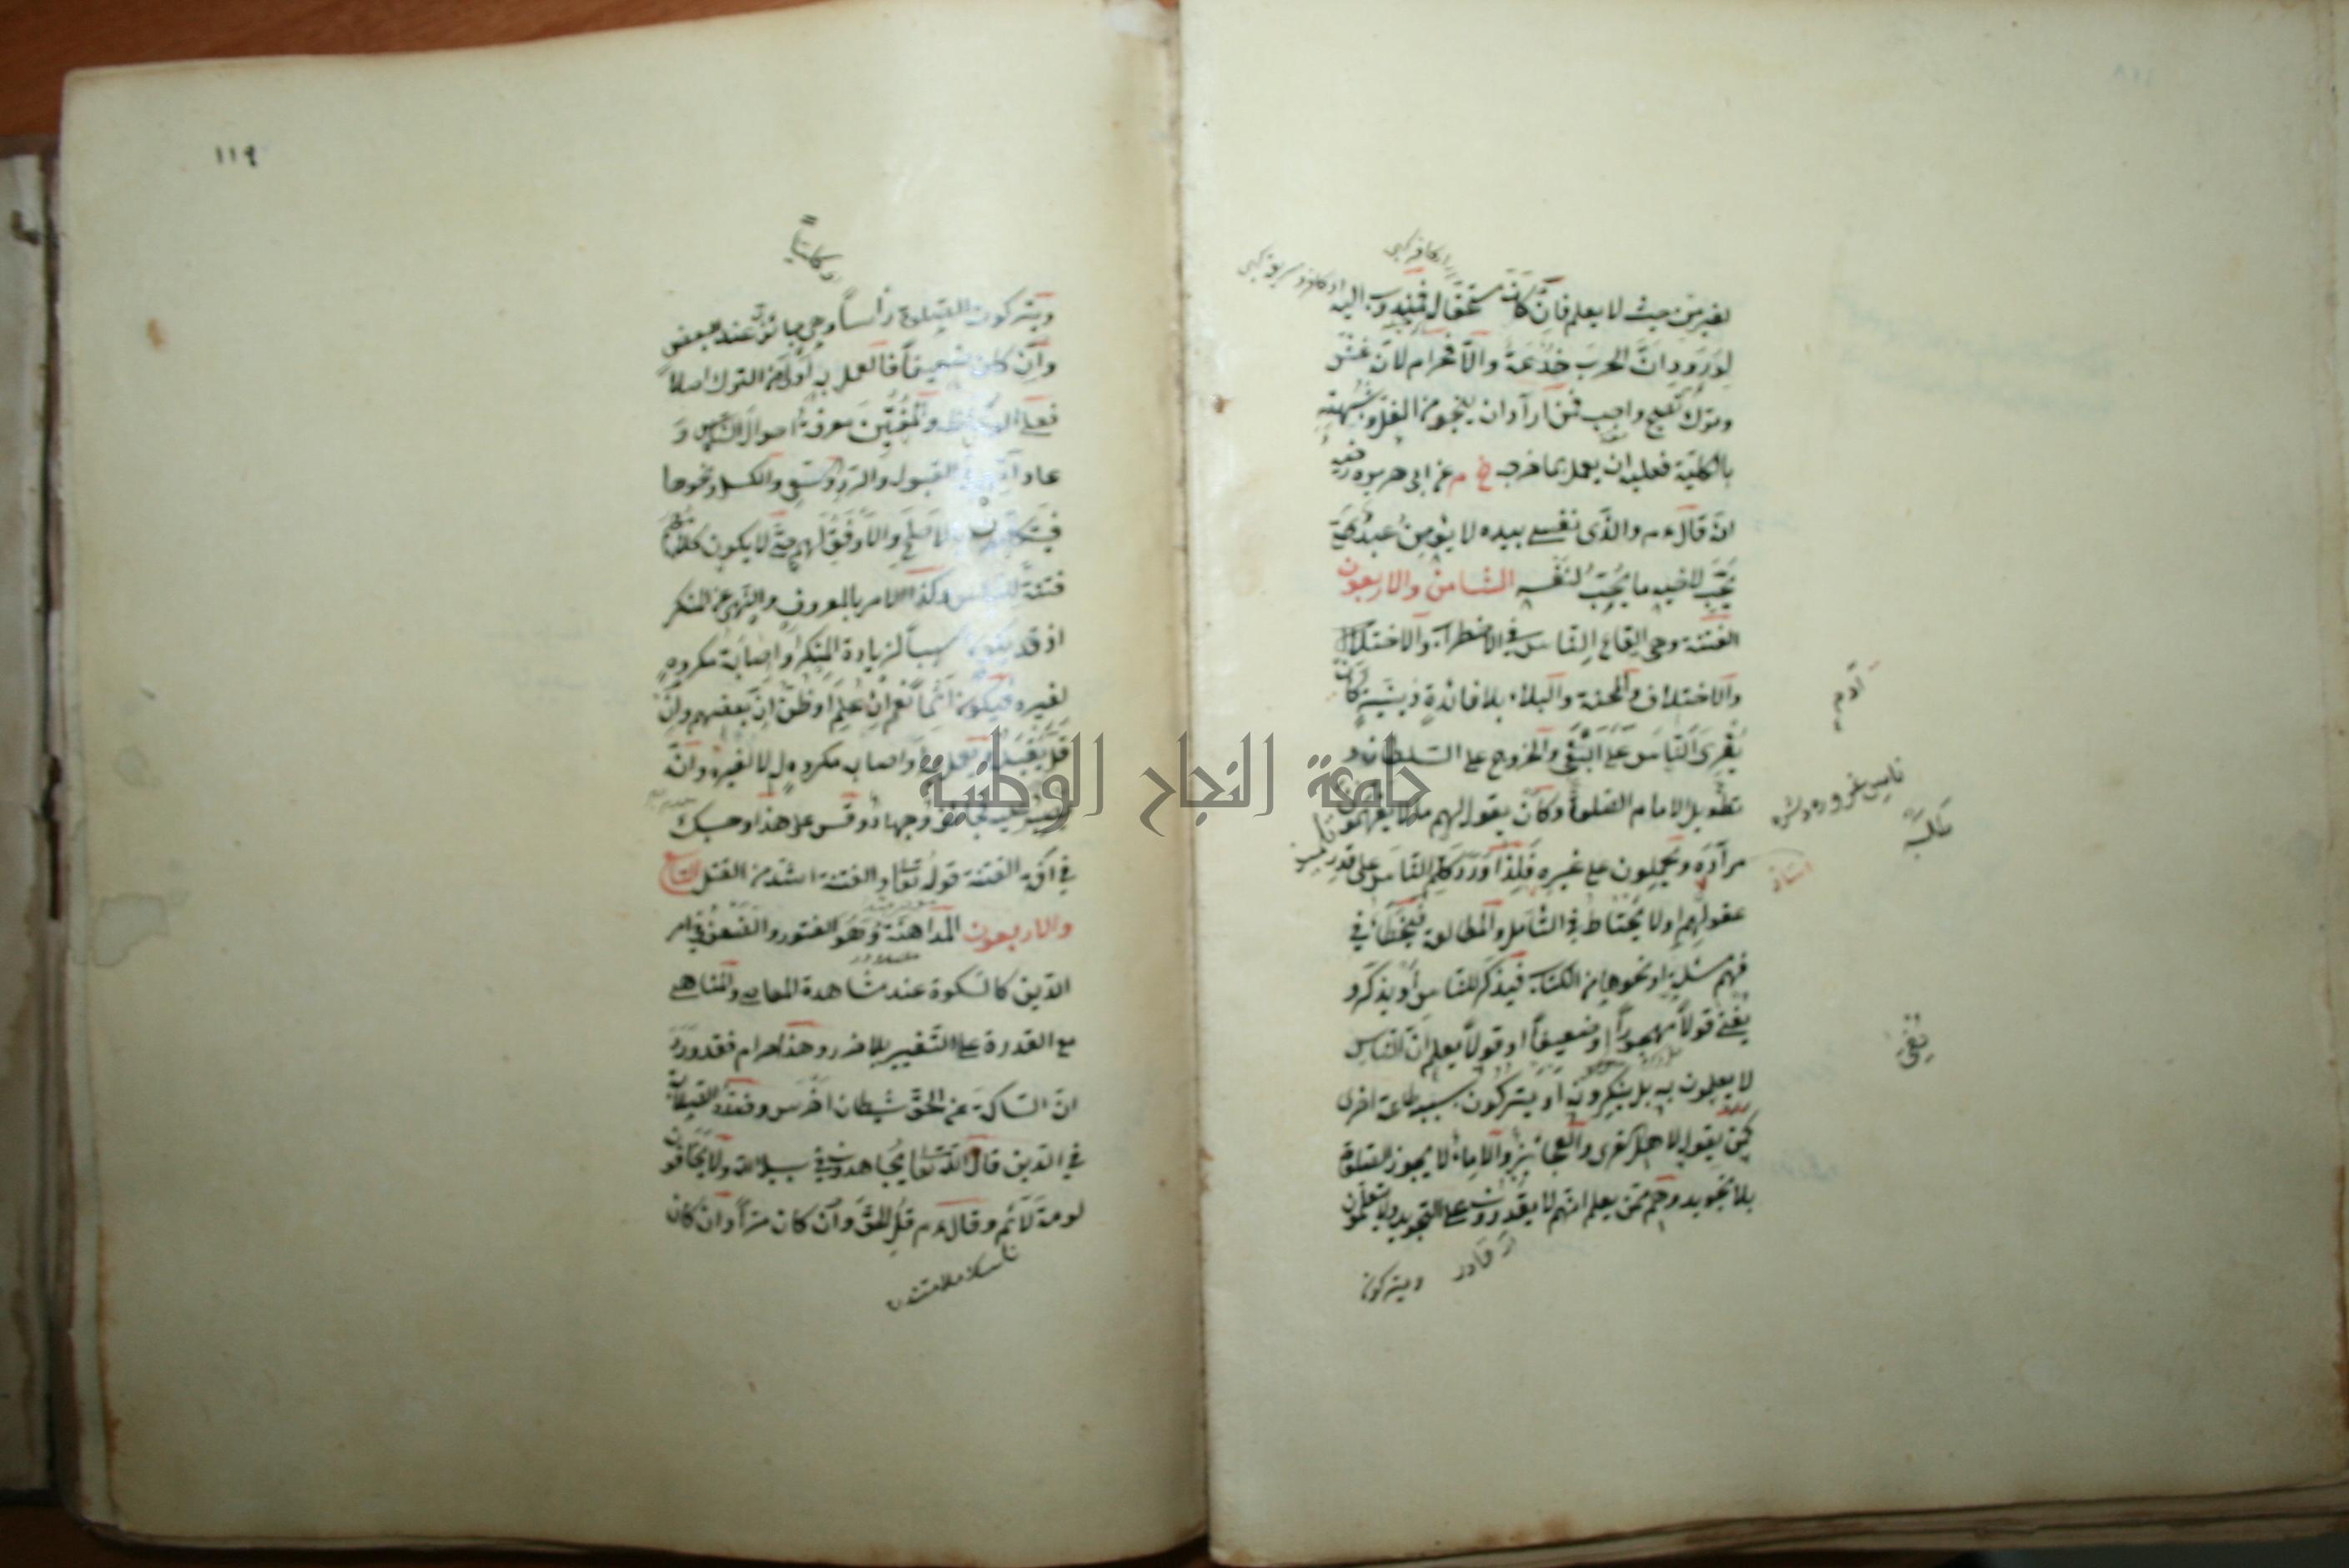 لغيره من حيث لا يعلم فان كان مستحقا له فمندوب اليه
لورود ان الحرب خدعة والا فحرام لان غش
وترك نصح واجب فمن اراد ان ينجو من الغل وشبهته
بالكلية فعليه ان يعمل بما خرجه خ م عن ابى هريرة رضيه
انه قال عم والذى نفسى بيده لا يؤمن عبد حتى
يحب لاخيه ما يحب لنفسه الثامن والاربعون
الفتنة وهى ايقاع الناس فى الاضطراب والاختلال
والاختلاف والمحنة والبلاء بلا فائدة دينية كان
يغرى الناس على البغى والخروج على السلطان و
تطويل الامام الصلوة وكان يقول لهم ما لا يفهمون
مراده ويحملون على غيره فلذا ورد كلم الناس على قدر
عقولهم او لا يحتاط فى التامل والمطالعة فيخطأ فى
فهم مسئلة او نحوها من الكتاب فيذكر للناس او يذكر و
يفتى قولا مهجورا او ضعيفا او قولا يعلم ان الناس
لا يعملون به بل ينكرونه او يتركون بسببه طاعة اخرى
كمن يقول لاهل القرى والعجائز والاماء لا يجوز الصلوة
بلا تجويد وهم ممن يعلم انهم لا يقدرون على التجويد ولا يتعلمون
ويتركون
١١٩
ويتركون الصلوة رأسا وهى جائزة عند البعض
وان كان ضعيفا فالعمل به اولى من الترك اصلا
فعلى الوعاظ والمفتين معرفة احوال الناس و
عاداتهم فى القبول والرد والسعى والكسل ونحوها
فيتكلمون بالاصلح والاوفق لهم حتى لا يكون كلامهم
فتنة للناس وكذا الامر بالمعروف والنهى عن المنكر
اذ قد يكون سببا لزيادة المنكر او اصابة مكروه
لغيره فيكون آثما نعم ان علم او ظن ان بعضهم وان
قل يقبل ويعمل به او اصابه مكروه له لا لغيره وانه
وجهاد وقس على هذا وحسبك
فى آفة الفتنة قوله تعا والفتنة اشد من القتل التاسع
والاربعون المداهنة وهو الفتور والضعف فى امر
الدين كالسكوة عند مشاهدة المعاصى والمناهى
مع القدرة على التغيير بلا ضرر وهذا حرام فقد ورد
ان الساكت عن الحق شيطان اخرس وضده الصلابة
فى الدين قال الله تعا يجاهدون فى سبيل الله ولا يخافون
لومة لائم وقال عم قل الحق وان كان مرا وان كان
جامعة النجاح الوطنية